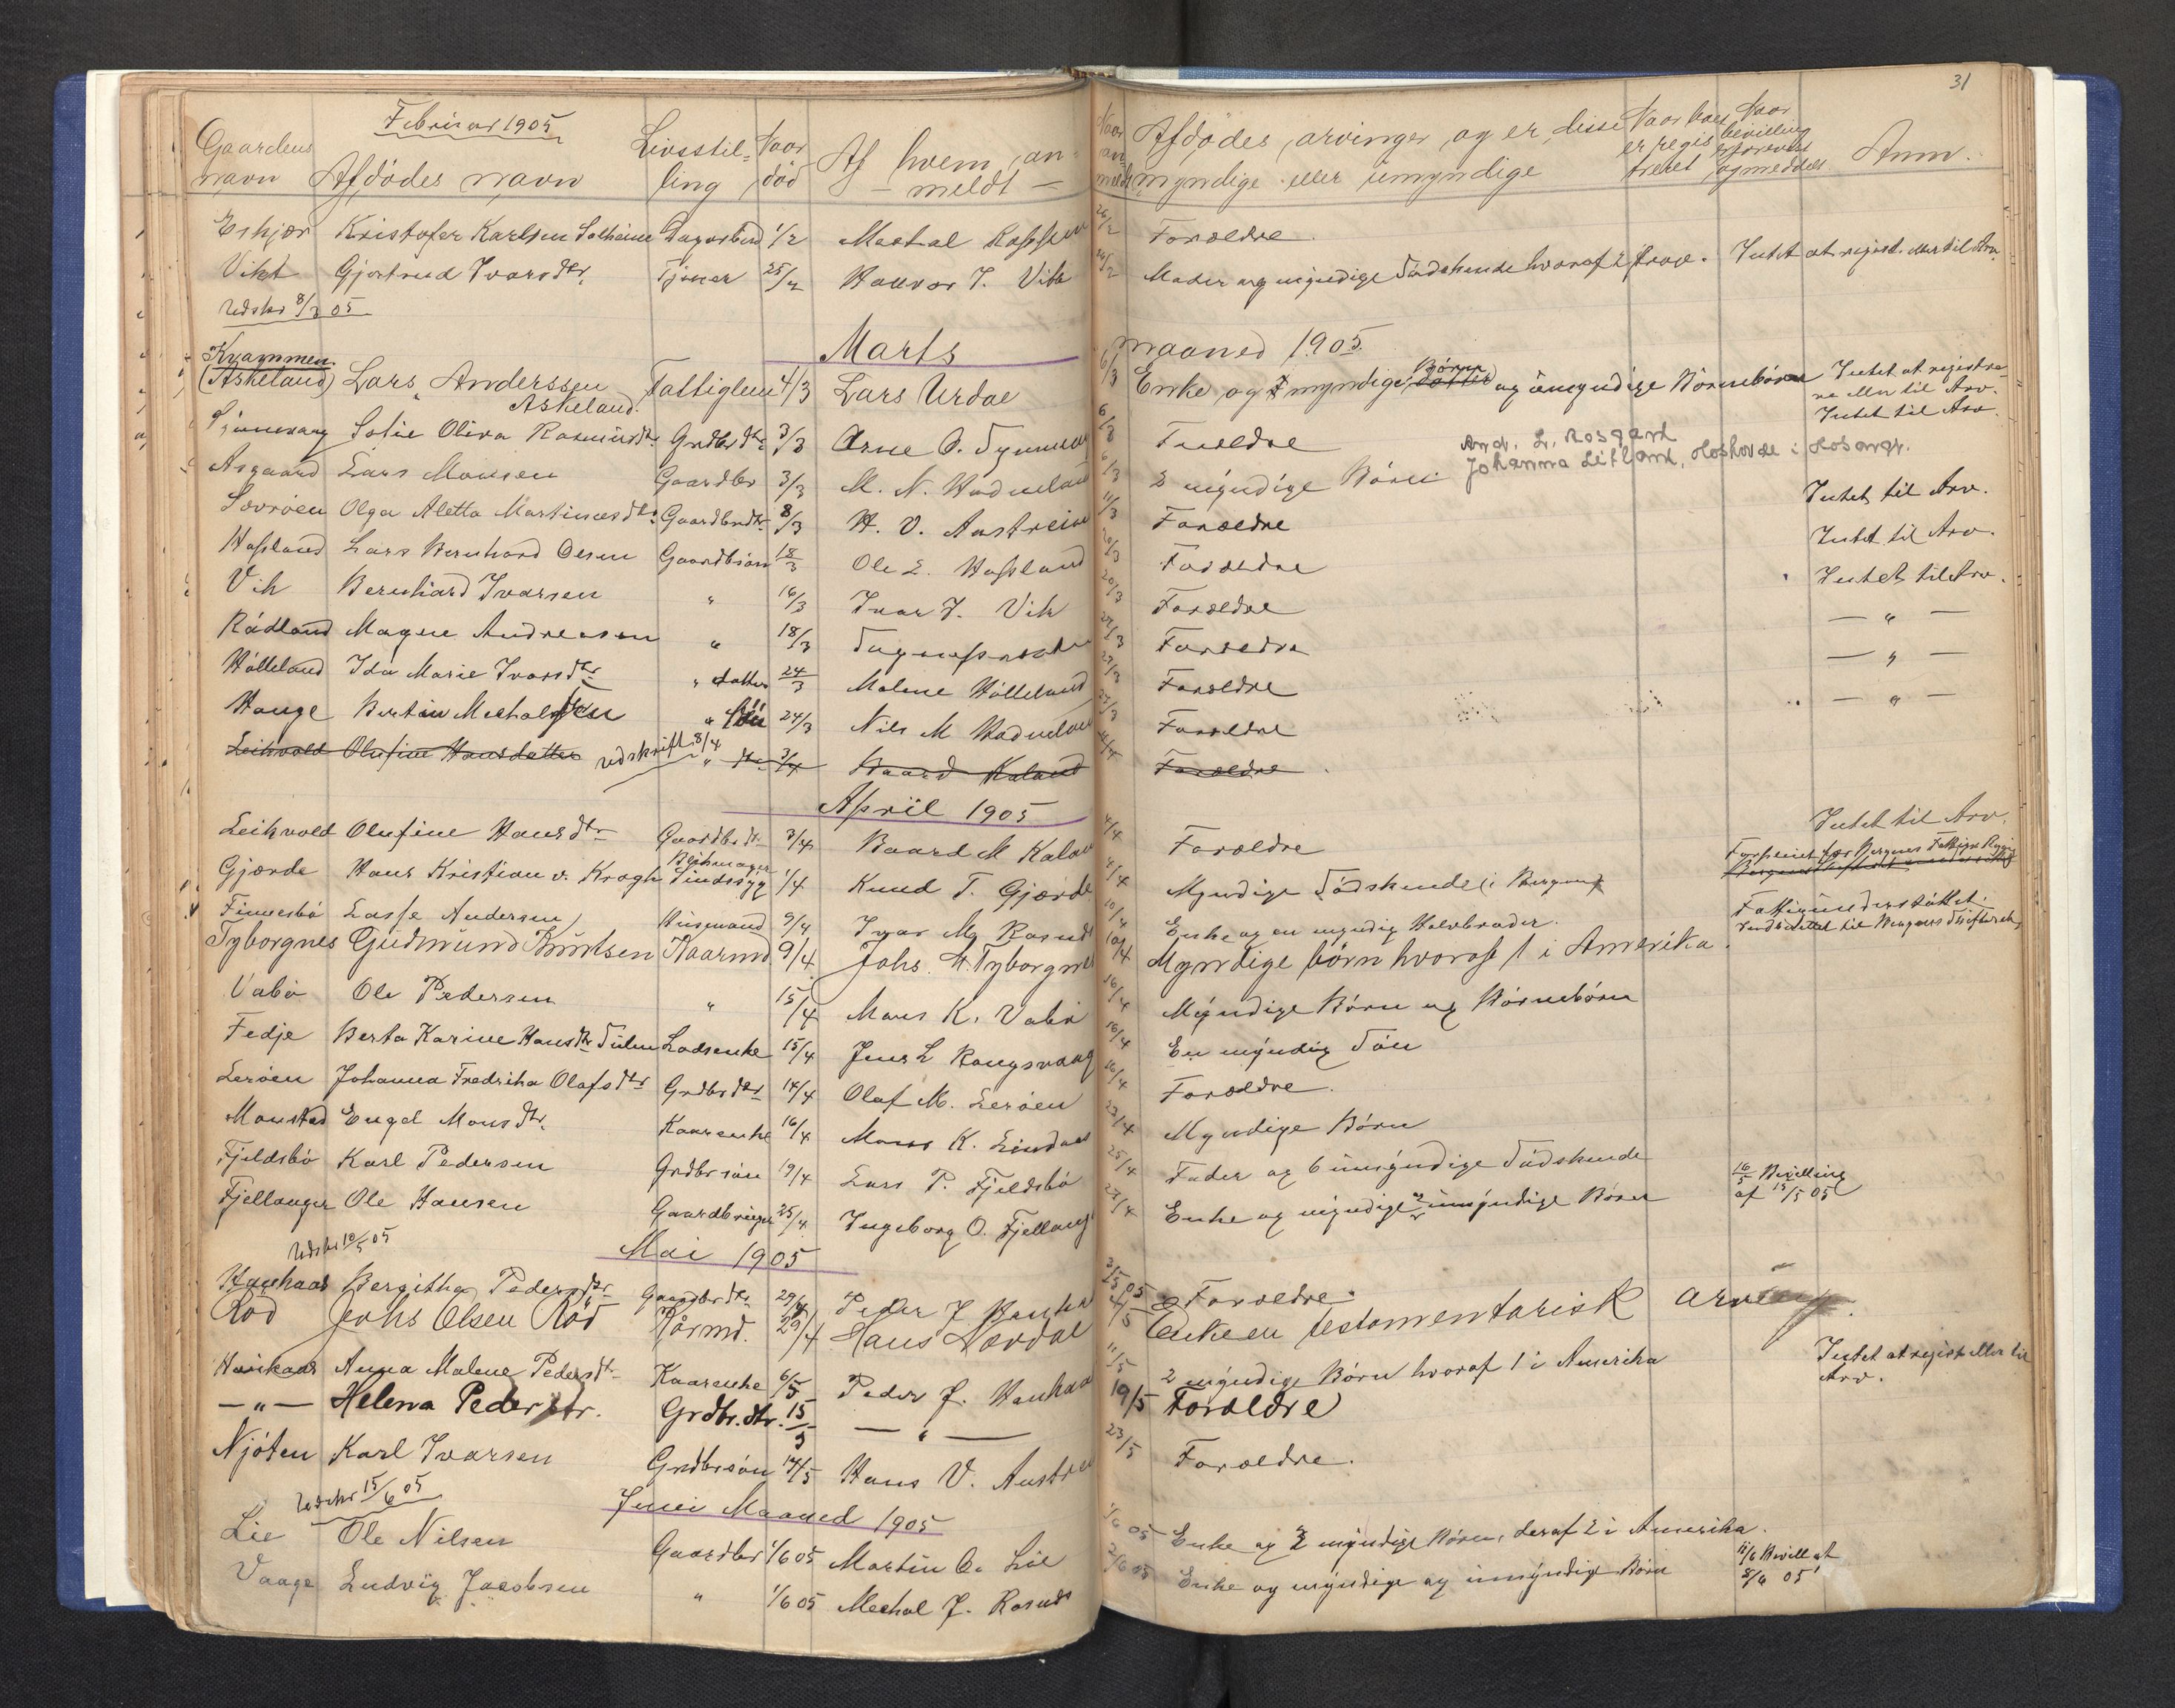 31
Februar 1905
Gaardens navn Afdødes navn Livsstilling Naar død Af hvem anmeldt Naar anmeldt Afdødes arvinger og er disse myndige eller umyndige Naar boet er registreret Naar bevilling og meddelt Anm.
Eskjær Kristofer Karlsen Solheim 1/2 26/2 Forældre
Vikt Gjertrud Ivarsdtr. Tjener 25/2 J. Vikt 26/2 Moder og myndige Sødskende hvoraf 2 Intet at regist. eller til Arv.
Udskr 8/3 05
Marts maaned 1905
Kvammen
(Askeland) Lars Anderssen Askeland Fattiglem 4/3 Lars Urdal 6/3 Enke og myndige Børn og umyndige Børnebørn Intet at registrere eller til Arv.
Sofie Oliva Rasmusdtr Grdbrdtr 3/3 Arne O. 6/3 Foreldre Intet til Arv.
Asgaard Lars Monsen Gaardbr 3/3 M. N. Hadneland 6/3 2 myndige Børn And. L. Rosgard
Johanna Litland, i Hosanger.
Olga Aletta Martinusdtr Gaardbrdtr 8/3 H. V. Austreim 11/3 Forældre Intet til Arv.
Hopland Lars Bernhard Olsen Gaardbsøn 18/3 Ole L. Hopland 20/3 Forældre Intet til Arv.
Vik Bernhard Ivarsen " 16/3 Ivar J. Vik 20/3 Forældre Intet til Arv.
Rådland Magne Andreasen " 18/3 Sogneprest 22/3 Forældre — " —
Hålleland Ida Marie Ivarsdtr " datter 24/3 Malene Hålleland 27/3 Forældre — " —
Hauge Bertin Mechalsen " Søn 24/3 Nils M Hadneland 27/3 Forældre — " —
Leikvold Olufine Hansdatter udskrift 8/4 " dtr 3/4 Baard Kaland 4/4 Forældre
April 1905
Leikvold Olufine Hansdtr Gaardbrdtr 3/4 Baard M Kaland 4/4 Forældre Intet til Arv.
Gjærde Hans Kristian v. Krogh Sindssyg 1/4 Knud T. Gjærde 4/4 Myndige Sødskende (i Bergen) Forpleiet for Bergens Fattige
Finnesbø Lasse Andersen Husmand 9/4 Ivar Mg 10/4 Enke og en myndig Halvbroder. Fattigunderstøttet.
Tyborgnes Gudmund Knutsen Kaarmd. 9/4 Johs. H. Tyborgnes 10/4 Myndige børn hvoraf 1 i Amerika.
Vabø Ole Pedersen " 15/4 Mons K. Vabø 16/4 Myndige Børn og Børnebørn
Fedje Berta Karine Hansdtr Lodsenke 15/4 Jens L Kongsvaag 16/4 En myndig Søn
Lerøen Johanna Fredrika Olafsdtr Grdbrdtr 14/4 Olaf M. Lerøen 16/4 Forældre.
Monstad Engel Monsdtr. Kaarenke 16/4 Mons K. Lindaas 23/4 Myndige Børn
Fjeldsbø Karl Pedersen Grdbrsøn 19/4 Lars P. Fjeldsbø 25/4 Fader og 6 umyndige Sødskende
Fjellanger Ole Hansen Gaardbruger 25/4 Ingeborg O. Fjellanger 27/4 Enke og myndige og umyndige Børn 16/5 Bevilling af 15/5 05
Udskr 10/5 05
Mai 1905
Haukaas Bergitha Pedersdtr Gaardbrdtr 29/4 Peder J. Haukaas 2/5 05 Forældre.
Rød Johs Olsen Rød Kårmd. 29/4 Hans Nordal 4/5 Enke en testamentarisk arving.
Haukaas Anna Malene Pedersdtr Kaarenke 6/5 Peder J. Haukaas 11/5 2 myndige Børn hvoraf 1 i Amerika Intet at regist eller til Arv.
— " — Helena Pedersdtr. Grdbr. dtr. 15/5 — " — 19/5 Forældre
Njøten Karl Ivarsen Grdbrsøn 14/5 Hans V. Austreim 23/5 Forældre.
Udskr 15/6 05
Juni Maaned 1905
Lie Ole Nilsen Gaardbr 1/6 05 Martin O. Lie 1/6 05 Enke og 2 myndige Børn, deraf 2 i Amerika.
Vaage Ludvig Jacobsen " 1/6 05 Mechal J. 2/6 05 Enke og myndige og umyndige Børn 11/6 Bevill af 8/6 05